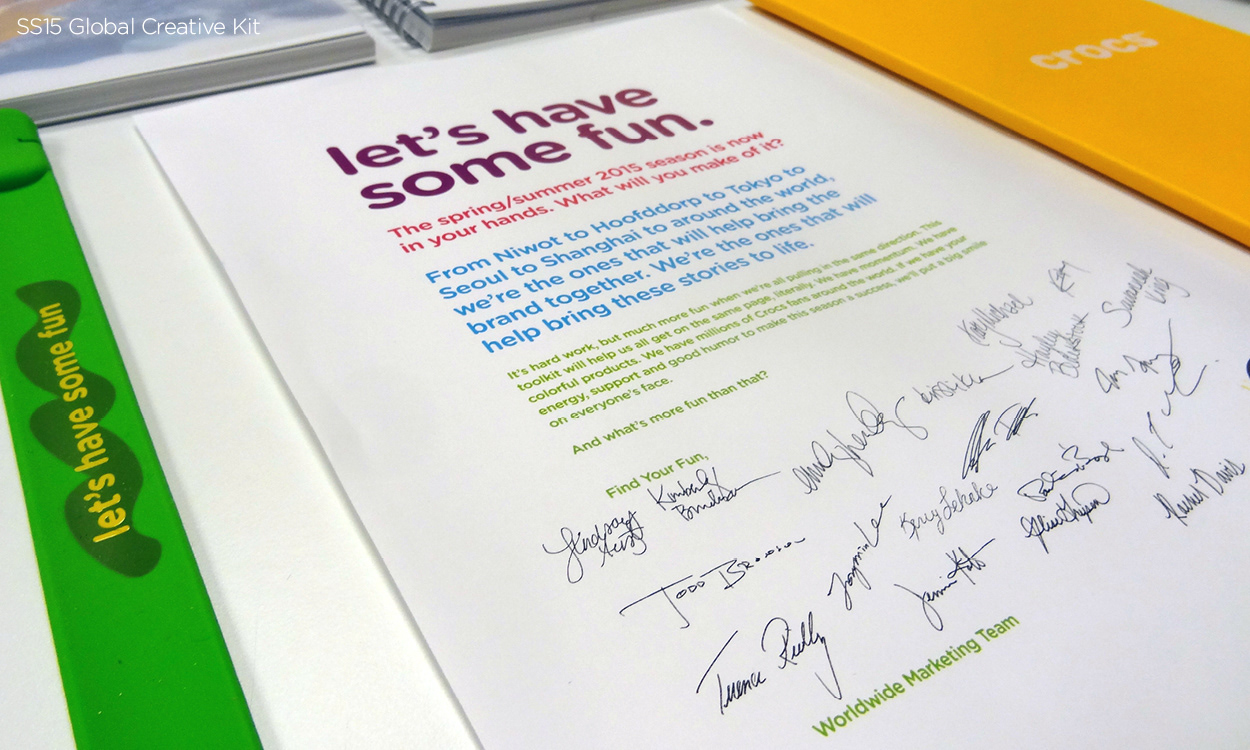 SS15 Global Creative Kit
crocs
let's have
some fun.
The spring/summer 2015 season is now
in your hands. What will you make of it?
From Niwot to Hoofddorp to Tokyo to
Seoul to Shanghai to around the world,
we're the ones that will help bring the
brand together. We're the ones that will
help bring these stories to life.
It's hard work, but much more fun when we're all pulling in the same direction. This
toolkit will help us all get on the same page, literally. We have momentum. We have
colorful products. We have millions of Crocs fans around the world. If we have your
energy, support and good humor to make this season a success, we'll put a big smile
on everyone's face.
And what's more fun than that?
Find Your Fun,
Lindsay
Kimberly
Todd
Jazymin Lee
Kerry
Rachel Davis
Hayley
Savannah
Terence Reilly
Worldwide Marketing Team
let's have some fun